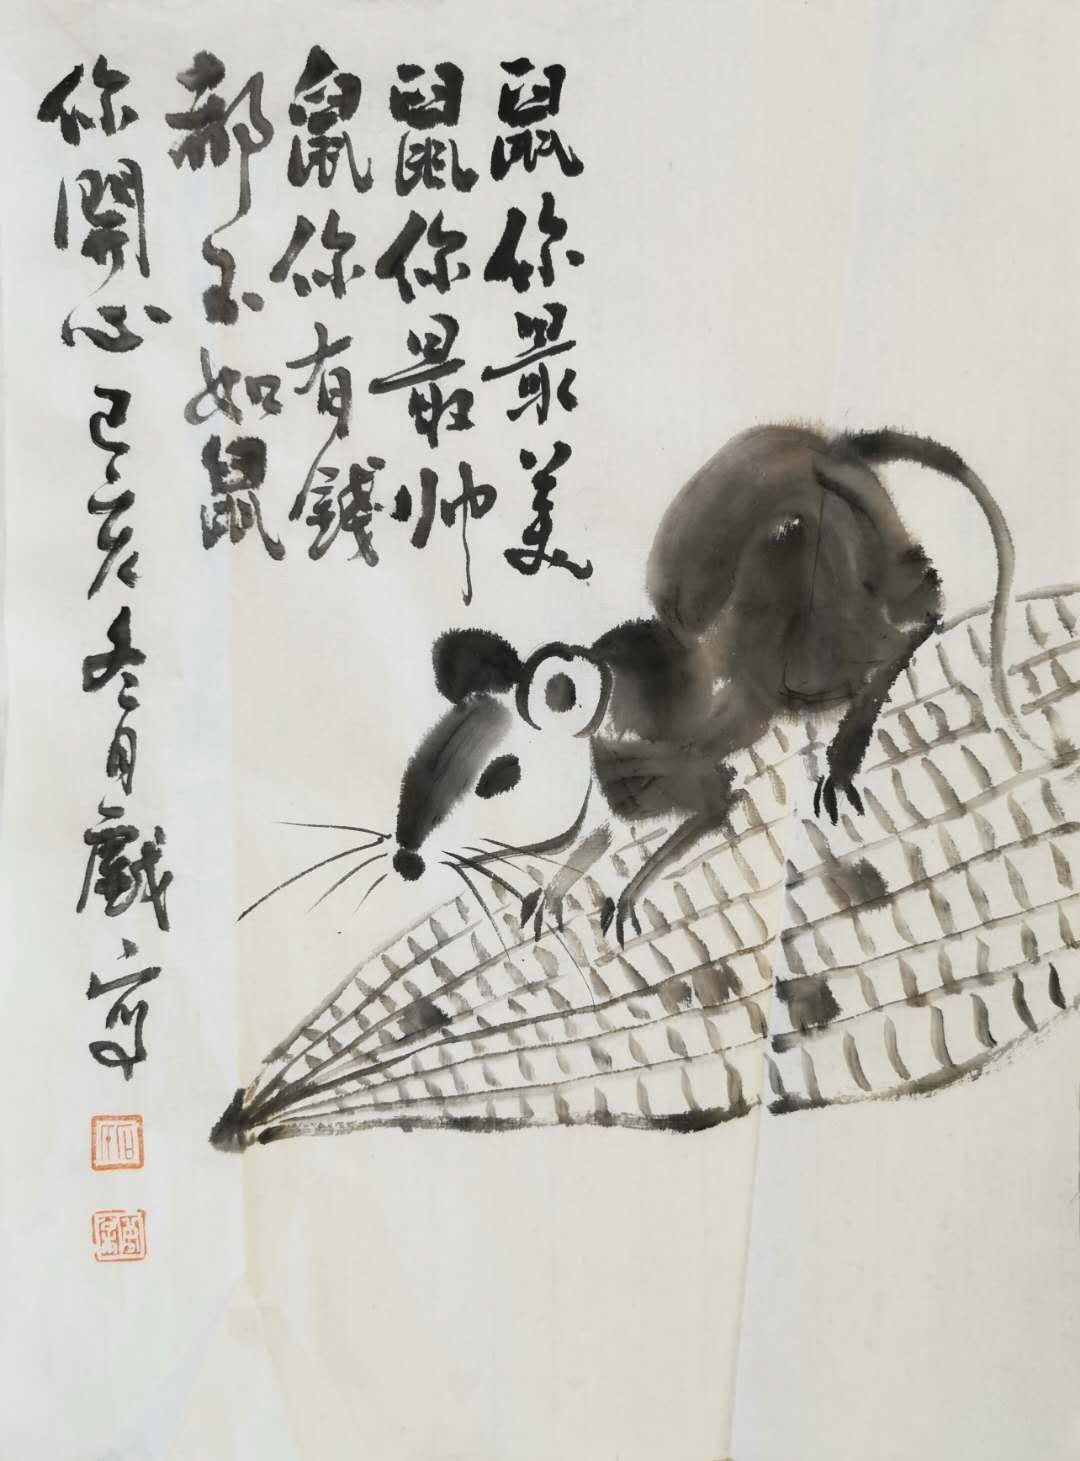 鼠你最美
鼠你最帅
鼠你有錢
都不如鼠
你開心己亥冬月戲寫